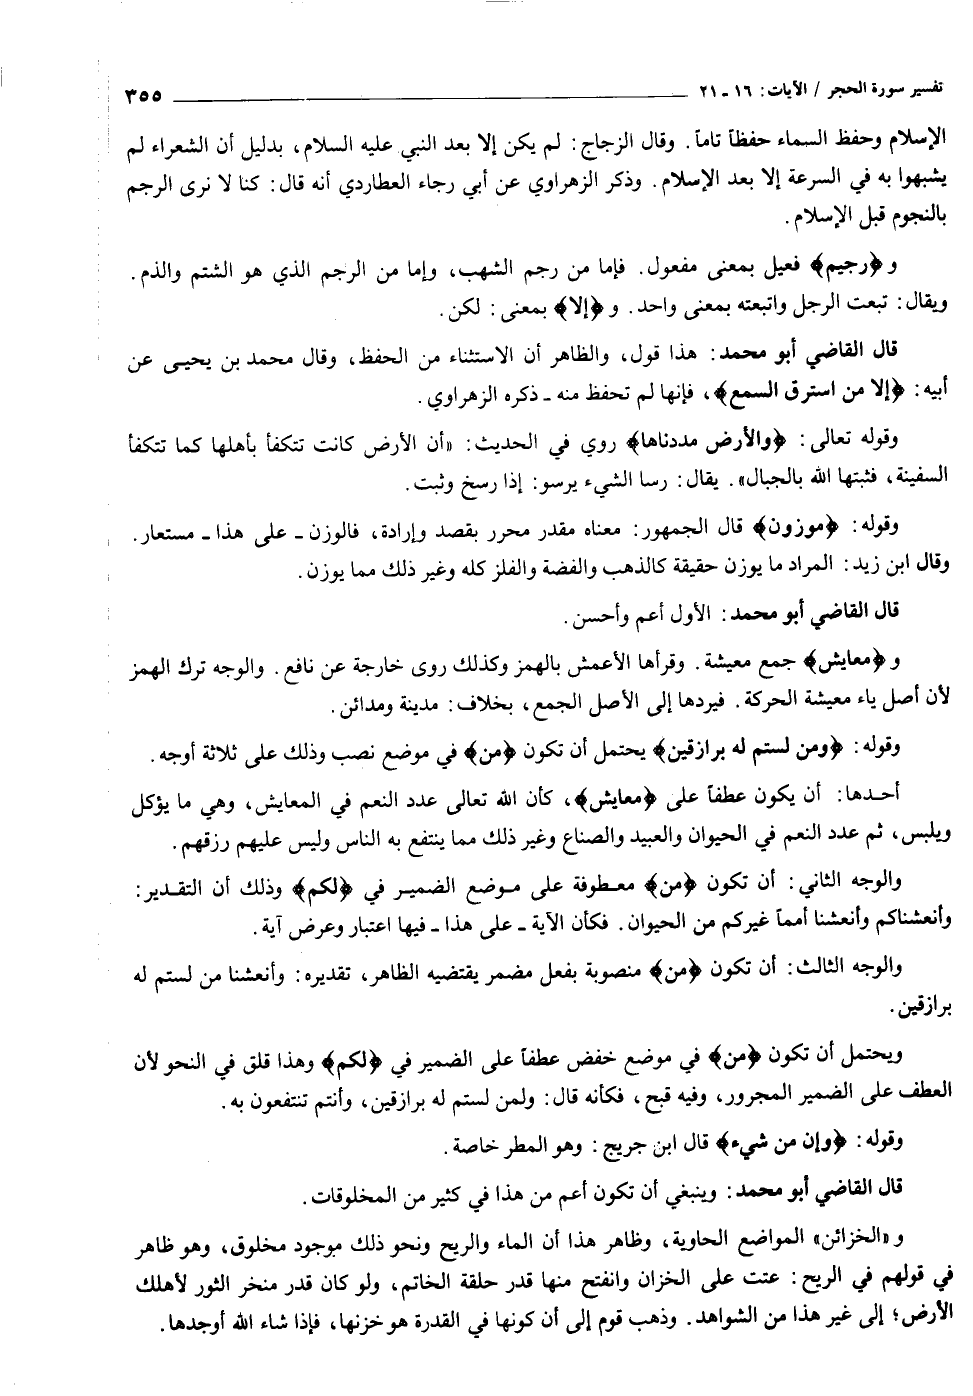 تفسير سورة الحجر / الآيات: ١٦ - ٢١ ٣٥٥
الإسلام وحفظ السماء حفظاً تاماً. وقال الزجاج: لم يكن إلا بعد النبي عليه السلام، بدليل أن الشعراء لم
يشبهوا به في السرعة إلا بعد الإسلام. وذكر الزهراوي عن أبي رجاء العطاردي أنه قال: كنا لا نرى الرجم
بالنجوم قبل الإسلام.
و ﴿رجيم﴾ فعيل بمعنى مفعول. فإما من رجم الشهب، وإما من الرجم الذي هو الشتم والذم.
ويقال: تبعت الرجل واتبعته بمعنى واحد. و ﴿إلا﴾ بمعنى: لكن.
قال القاضي أبو محمد: هذا قول، والظاهر أن الاستثناء من الحفظ، وقال محمد بن يحيى عن
أبيه: ﴿إلا من استرق السمع﴾، فإنها لم تحفظ منه - ذكره الزهراوي.
وقوله تعالى: ﴿والأرض مددناها﴾ روي في الحديث: «أن الأرض كانت تتكفأ بأهلها كما تتكفأ
السفينة، فثبتها الله بالجبال». يقال: رسا الشيء يرسو: إذا رسخ وثبت.
وقوله: ﴿موزون﴾ قال الجمهور: معناه مقدر محرر بقصد وإرادة، فالوزن - على هذا - مستعار.
وقال ابن زيد: المراد ما يوزن حقيقة كالذهب والفضة والفلز كله وغير ذلك مما يوزن.
قال القاضي أبو محمد: الأول أعم وأحسن.
و ﴿معايش﴾ جمع معيشة. وقرأها الأعمش بالهمز وكذلك روى خارجة عن نافع. والوجه ترك الهمز
لأن أصل ياء معيشة الحركة. فيردها إلى الأصل الجمع، بخلاف: مدينة ومدائن.
وقوله: ﴿ومن لستم له برازقين﴾ يحتمل أن تكون ﴿من﴾ في موضع نصب وذلك على ثلاثة أوجه.
أحدها: أن يكون عطفاً على ﴿معايش﴾، كأن الله تعالى عدد النعم في المعايش، وهي ما يؤكل
ويلبس، ثم عدد النعم في الحيوان والعبيد والصناع وغير ذلك مما ينتفع به الناس وليس عليهم رزقهم.
والوجه الثاني: أن تكون ﴿من﴾ معطوفة على موضع الضمير في ﴿لكم﴾ وذلك أن التقدير:
وأنعشناكم وأنعشنا أمماً غيركم من الحيوان. فكأن الآية - على هذا - فيها اعتبار وعرض آية.
والوجه الثالث: أن تكون ﴿من﴾ منصوبة بفعل مضمر يقتضيه الظاهر، تقديره: وأنعشنا من لستم له
برازقين.
ويحتمل أن تكون ﴿من﴾ في موضع خفض عطفاً على الضمير في ﴿لكم﴾ وهذا قلق في النحو لأن
العطف على الضمير المجرور، وفيه قبح، فكأنه قال: ولمن لستم له برازقين، وأنتم تنتفعون به.
وقوله: ﴿وإن من شيء﴾ قال ابن جريج: وهو المطر خاصة.
قال القاضي أبو محمد: وينبغي أن تكون أعم من هذا في كثير من المخلوقات.
و «الخزائن» المواضع الحاوية، وظاهر هذا أن الماء والريح ونحو ذلك موجود مخلوق، وهو ظاهر
في قولهم في الريح: عتت على الخزان وانفتح منها قدر حلقة الخاتم، ولو كان قدر منخر الثور لأهلك
الأرض؛ إلى غير هذا من الشواهد. وذهب قوم إلى أن كونها في القدرة هو خزنها، فإذا شاء الله أوجدها.